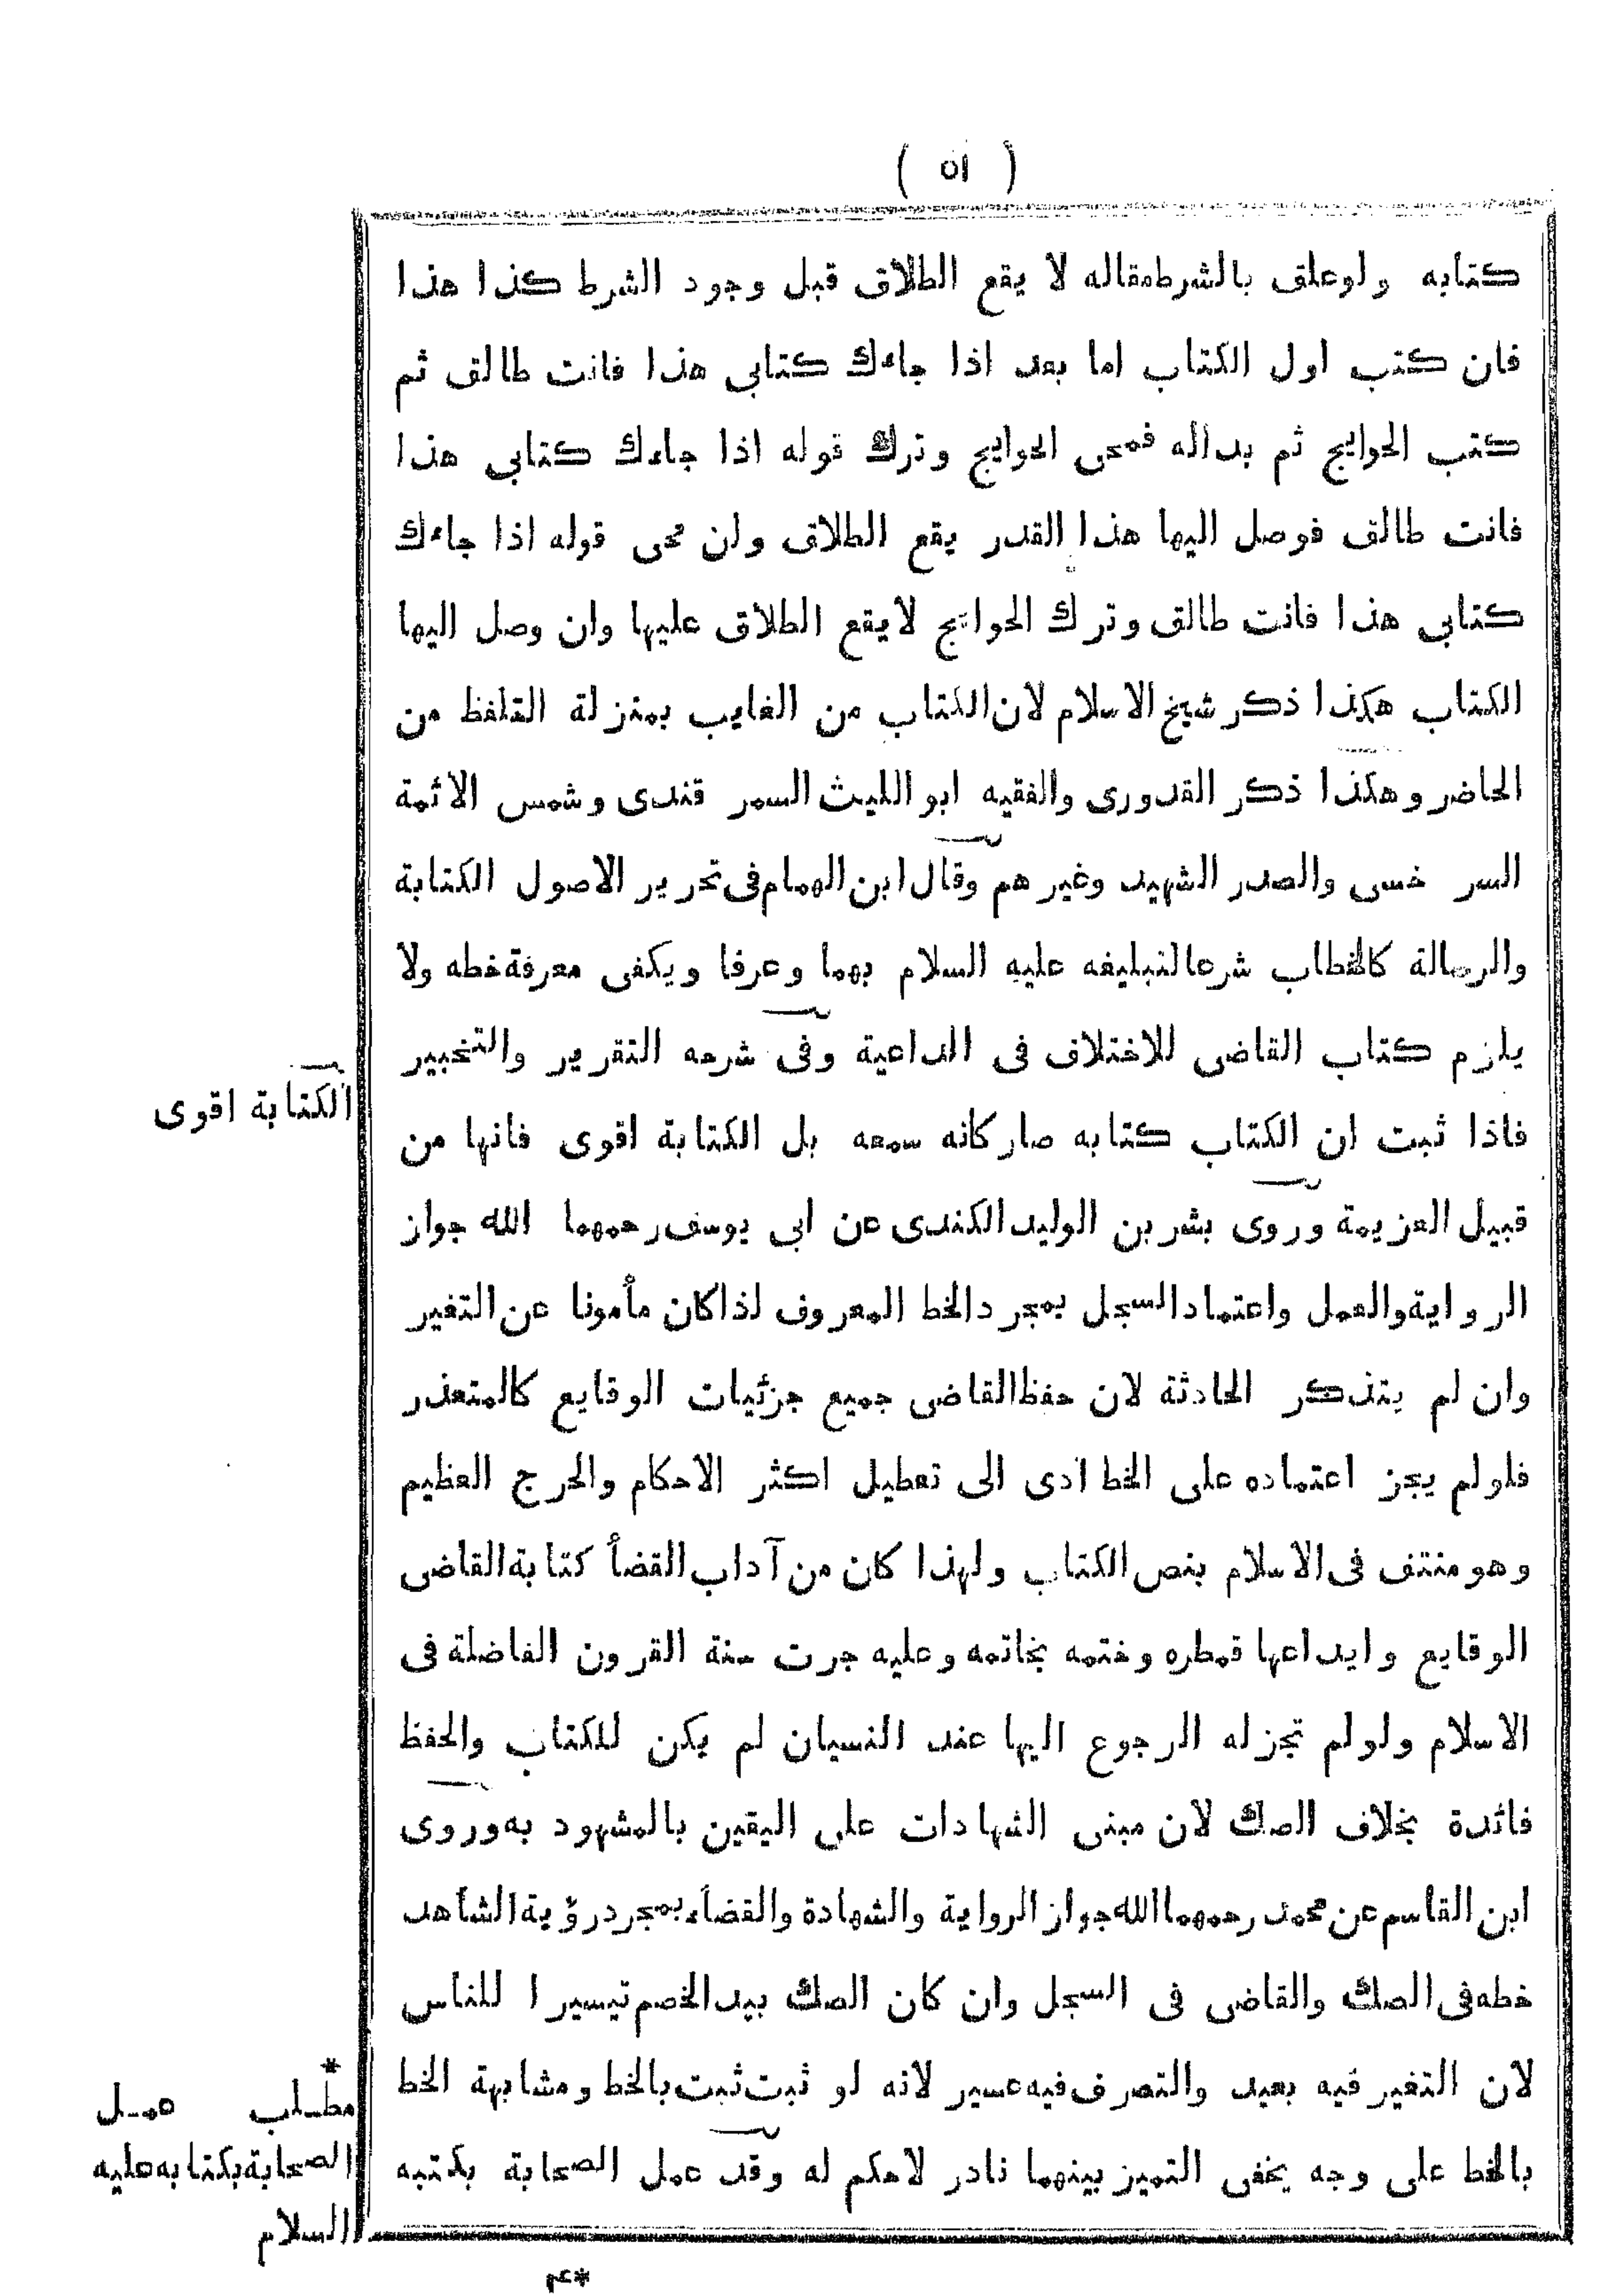 ( ٥١ )
كتابه ولوعلق بالشرط مقاله لا يقع الطلاق قبل وجود الشرط كذا هذا
فان كتب اول الكتاب اما بعد اذا جاءك كتابى هذا فانت طالق ثم
كتب الحوايج ثم بداله فمحى الحوايج وترك قوله اذا جاءك كتابى هذا
فانت طالق فوصل اليها هذا القدر يقع الطلاق وان محى قوله اذا جاءك
كتابى هذا فانت طالق وترك الحوايج لايقع الطلاق عليها وان وصل اليها
الكتاب هكذا ذكر شيخ الاسلام لان الكتاب من الغايب بمنزلة التلفظ من
الحاضر وهكذا ذكر القدورى والفقيه ابو الليث السمر قندى وشمس الائمة
السر خسى والصدر الشهيد وغيرهم وقال ابن الهمام فى تحرير الاصول الكتابة
والرسالة كالخطاب شرعا لتبليغه عليه السلام بهما وعرفا ويكفى معرفة خطه ولا
يلزم كتاب القاضى للاختلاف فى الداعية وفى شرحه التقرير والتخبير
فاذا ثبت ان الكتاب كتابه صار كانه سمعه بل الكتابة اقوى فانها من
قبيل العزيمة وروى بشر بن الوليد الكندى عن ابى يوسف رحمهما الله جواز
الرواية والعمل واعتماد السجل بمجرد الخط المعروف لذا كان مأمونا عن التغير
وان لم يتذكر الحادثة لان حفظ القاضى جميع جزئيات الوقايع كالمتعذر
فلولم يجز اعتماده على الخط ادى الى تعطيل اكثر الاحكام والحرج العظيم
وهو منتف فى الاسلام بنص الكتاب ولهذا كان من آداب القضأ كتابة القاضى
الوقايع وايداعها قمطره وختمه بخاتمه وعليه جرت سنة القرون الفاضلة فى
الاسلام ولولم تجزله الرجوع اليها عند النسيان لم يكن للكتاب والحفظ
فائدة بخلاف الصك لان مبنى الشهادات على اليقين بالمشهود به وروى
ابن القاسم عن محمد رحمهما الله جواز الرواية والشهادة والقضاء بمجرد رؤية الشاهد
خطه فى الصك والقاضى فى السجل وان كان الصك بيد الخصم تيسيرا للناس
لان التغير فيه بعيد والتصرف فيه عسير لانه لو ثبت ثبت بالخط ومشابهة الخط
بالخط على وجه يخفى التميز بينهما نادر لاحكم له وقد عمل الصحابة بكتبه
الكتابة اقوى
*
مطلب عمل
الصحابة بكتابه عليه
السلام